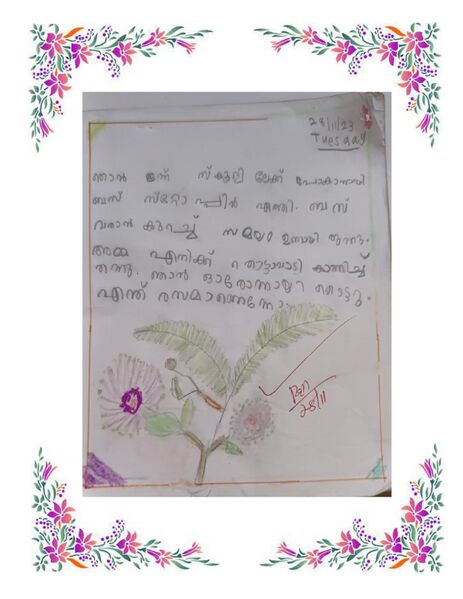 28/11/23
Tuesday
ഞാൻ ഇന്ന് സ്കൂളി ലേക്ക് പോകാനായി
ബസ് സ്റ്റോ പ്പിൽ എത്തി. ബസ്
വരാൻ കുറച്ച് സമയം ഉണ്ടായി രുന്നു.
അമ്മ എനിക്ക് തൊട്ടാവാടി കാണിച്ച്
തന്നു. ഞാൻ ഓരോന്നായി തൊട്ടു.
എന്ത് രസമാണെന്നോ.
28/11